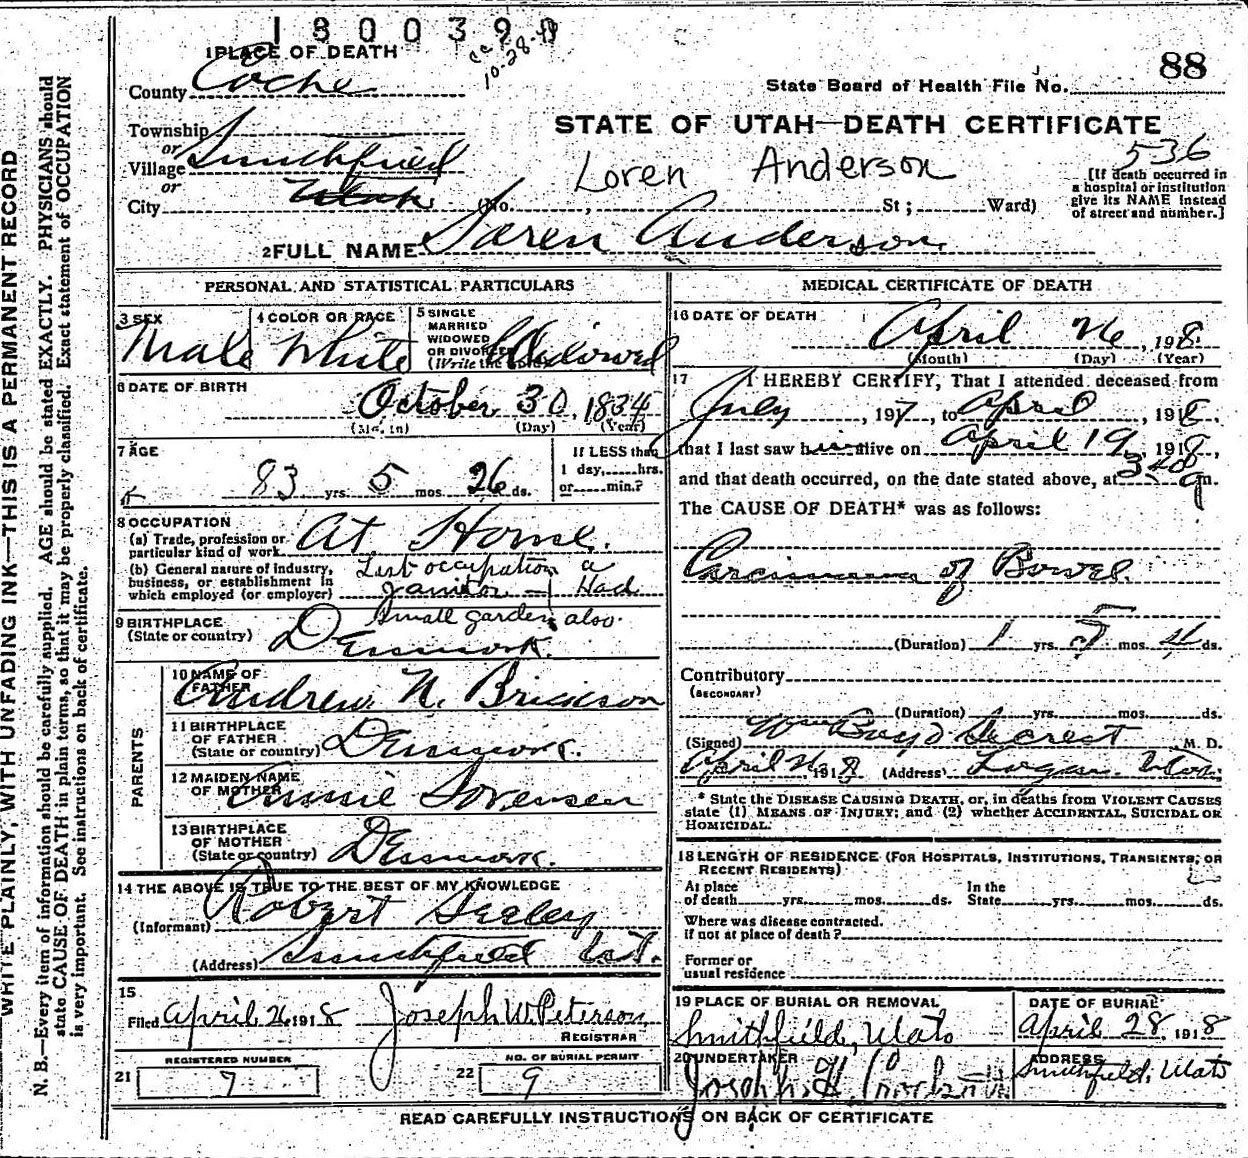 1800390
cc
10-28-49
1 PLACE OF DEATH
88
County Cache
State Board of Health File No.
STATE OF UTAH—DEATH CERTIFICATE
Township
or
Village Smithfield
or
City Utah
Loren Anderson
536
[If death occurred in
a hospital or institution
give its NAME instead
of street and number.]
(No. , St ; Ward)
2 FULL NAME Soren Anderson.
PERSONAL AND STATISTICAL PARTICULARS
3 SEX Male
4 COLOR OR RACE White
5 SINGLE
MARRIED
WIDOWED
OR DIVORCED
(Write the word) Widowed
6 DATE OF BIRTH
October 30, 1834
(Month) (Day) (Year)
7 AGE
83 yrs. 5 mos. 26 ds.
If LESS than
1 day, hrs.
or min.?
8 OCCUPATION
(a) Trade, profession or
particular kind of work At Home.
(b) General nature of industry,
business, or establishment in
which employed (or employer)
List occupation a
janitor - Had
small garden also.
9 BIRTHPLACE
(State or country) Denmark.
PARENTS
10 NAME OF
FATHER Andrew N. Erickson
11 BIRTHPLACE
OF FATHER
(State or country) Denmark.
12 MAIDEN NAME
OF MOTHER Annie Sorensen
13 BIRTHPLACE
OF MOTHER
(State or country) Denmark.
14 THE ABOVE IS TRUE TO THE BEST OF MY KNOWLEDGE
(Informant) Robert Seeley
(Address) Smithfield Ut.
15
Filed April 26, 1918 Joseph W Peterson
REGISTRAR
REGISTERED NUMBER
21 7
NO. OF BURIAL PERMIT
22 9
MEDICAL CERTIFICATE OF DEATH
16 DATE OF DEATH
April 26, 1918
(Month) (Day) (Year)
17 I HEREBY CERTIFY, That I attended deceased from
July, 1917, to April, 1918,
that I last saw him alive on April 19, 1918,
and that death occurred, on the date stated above, at 340 a m.
The CAUSE OF DEATH* was as follows:
Carcinoma of Bowel.
(Duration) 1 yrs. 5 mos. 4 ds.
Contributory
(SECONDARY)
(Duration) yrs. mos. ds.
(Signed) Wm Boyd Secrest M. D.
April 26, 1918 (Address) Logan. Utah.
* State the DISEASE CAUSING DEATH, or, in deaths from VIOLENT CAUSES
state (1) MEANS OF INJURY; and (2) whether ACCIDENTAL, SUICIDAL OR
HOMICIDAL.
18 LENGTH OF RESIDENCE (FOR HOSPITALS, INSTITUTIONS, TRANSIENTS, OR
RECENT RESIDENTS)
At place
of death yrs. mos. ds.
In the
State yrs. mos. ds.
Where was disease contracted.
if not at place of death?
Former or
usual residence
19 PLACE OF BURIAL OR REMOVAL
Smithfield, Utah
DATE OF BURIAL
April 28, 1918
20 UNDERTAKER
Joseph
ADDRESS
Smithfield, Utah
READ CAREFULLY INSTRUCTIONS ON BACK OF CERTIFICATE
WRITE PLAINLY, WITH UNFADING INK—THIS IS A PERMANENT RECORD
N. B.—Every item of information should be carefully supplied. AGE should be stated EXACTLY. PHYSICIANS should
state CAUSE OF DEATH in plain terms, so that it may be properly classified. Exact statement of OCCUPATION
is very important. See instructions on back of certificate.